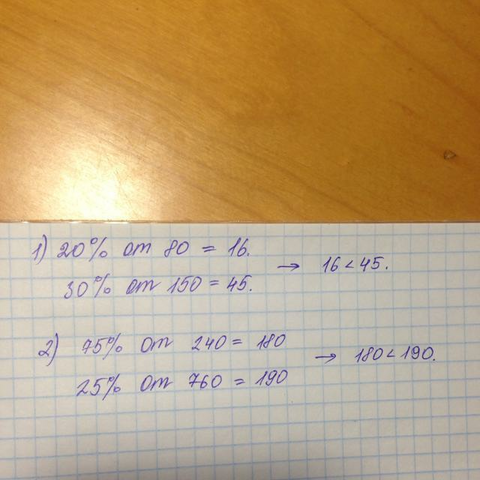 1) 20% от 80 = 16.
30% от 150 = 45. → 16 < 45.
2) 75% от 240 = 180
25% от 760 = 190 → 180 < 190.